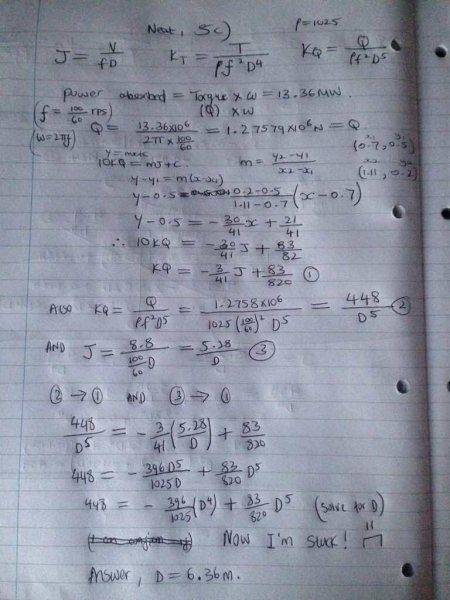 Next, 5c) ρ=1025
J = V/fD K_T = T/ρf²D⁴ K_Q = Q/ρf²D⁵
power absorbed = Torque × ω = 13.36 MW.
(f = 100/60 rps) (Q) × ω
(ω=2πf) Q = 13.36×10⁶/2π × 100/60 = 1.27579×10⁶ N = Q
x₁ y₁
(0.7, 0.5)
y = mx+c
10KQ = mJ + C. m = y₂-y₁/x₂-x₁ x₂ y₂
(1.11, 0.2)
y-y₁ = m(x-x₁)
y-0.5 = 0.2-0.5/1.11-0.7 (x-0.7)
y-0.5 = -30/41 x + 21/41
∴ 10KQ = -30/41 J + 83/82
KQ = -3/41 J + 83/820 ①
ALSO KQ = Q/ρf²D⁵ = 1.2758×10⁶/1025(100/60)² D⁵ = 448/D⁵ ②
AND J = 8.8/100/60 D = 5.28/D ③
② → ① AND ③ → ①
448/D⁵ = -3/41 (5.28/D) + 83/820
448 = -396D⁵/1025D + 83/820 D⁵
448 = -396/1025 (D⁴) + 83/820 D⁵ (solve for D)
Now I'm stuck!
Answer, D = 6.36m.